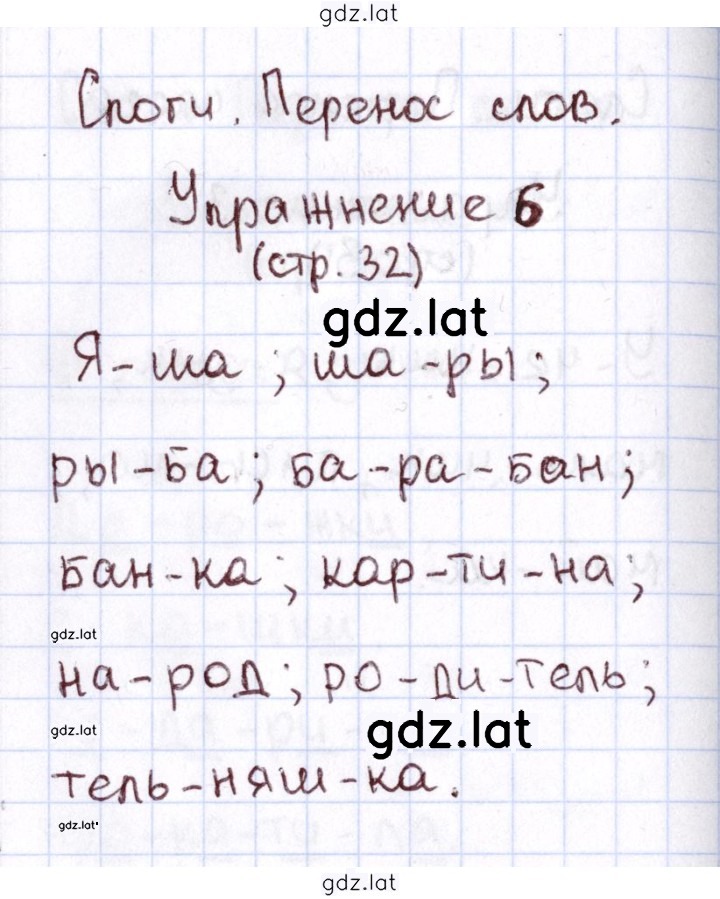 gdz.lat
Слоги. Перенос слов.
Упражнение 6
(стр. 32)
gdz.lat
Я-ша ; ша-ры;
ры-ба; ба-ра-бан;
бан-ка; кар-ти-на;
gdz.lat
на-род; ро-ди-тель;
gdz.lat
gdz.lat
тель-няш-ка.
gdz.lat
gdz.lat